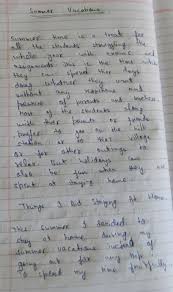 Summer Vacations
Summer time is a treat for
all the students struggling
whole year with exams and
assignments this is the time when
they can spend their days
doing whatever they want
without any
pressure of parents and teachers
Most of the students along
with their parents or friends
prefer to go on the hill
station or to their village
or for other outings to
relax. But holidays can
also be fun when they are
spent at staying home.
Things I did staying At Home.
This summer I decided to
stay at home during my
summer vacations instead of
going out for any trip
to spend my time fruitfully